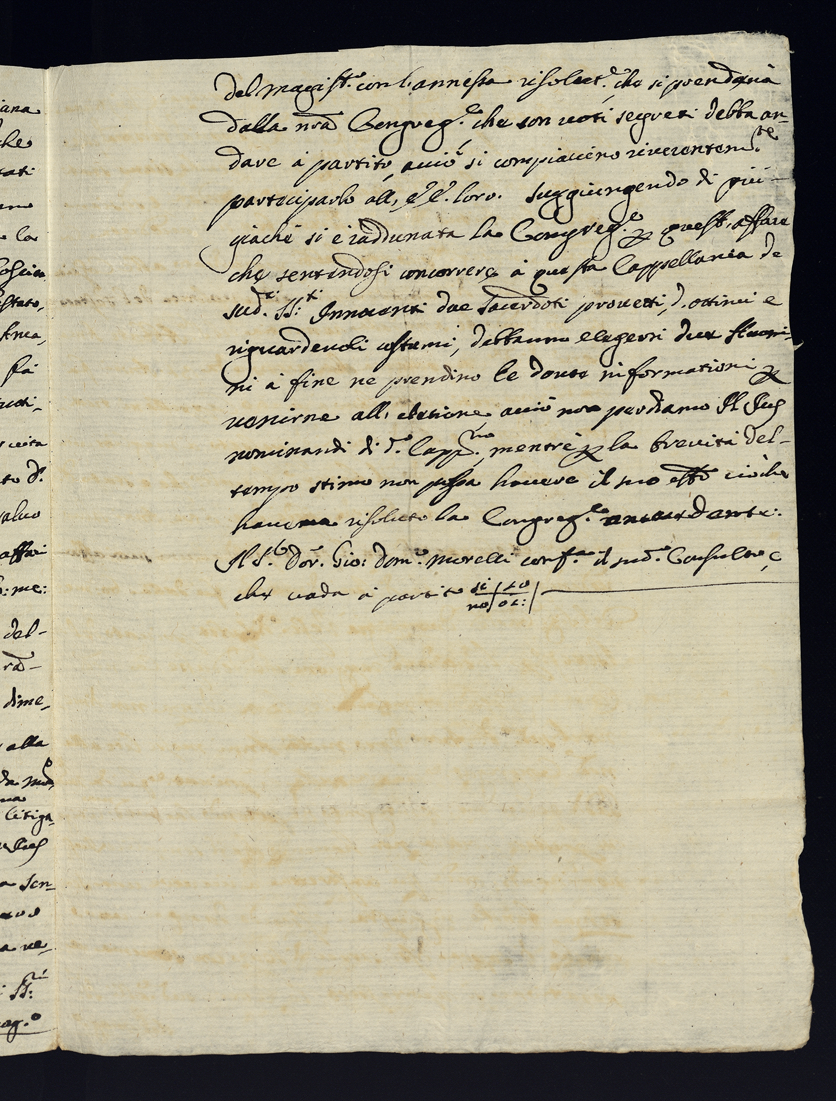 del magist.º con l'annessa risolut.e che si prenderà
dalla nrã Congreg.e che con voti segreti debba an-
dare à partito, acciò si compiaccino riverentem.te
participarlo all, e'e'. loro. suggiungendo di più-
giache si è raddunata la Congreg.e p quest'affare
che sentendosi concorrere à questa Cappellania de
sud.ti SS:ti Innocenti due Sacerdoti provetti, d'ottimi e
riguardevoli costumi, debbanno eleggersi due
ni à fine ne prendino le dovute informationi p
venirne all'eletione acciò non perdiamo Il Jus
nominandi di d.º Capp.no, mentre p la brevità del-
tempo stimo non possa havere il suo efftò ciò che
haveva risoluto la Congreg.e antecedente:
Il S.r dor. Gio: dom.co Morelli conf.a il sud.º Consulto, e
che vada à partito si / 20
no / 02: /
iana
che
tati
la
stato,
fà
to d.º
salvo
affari
del-
rã-
dime,
alla
litiga-
Jus
sen-
ve,
SS:ti